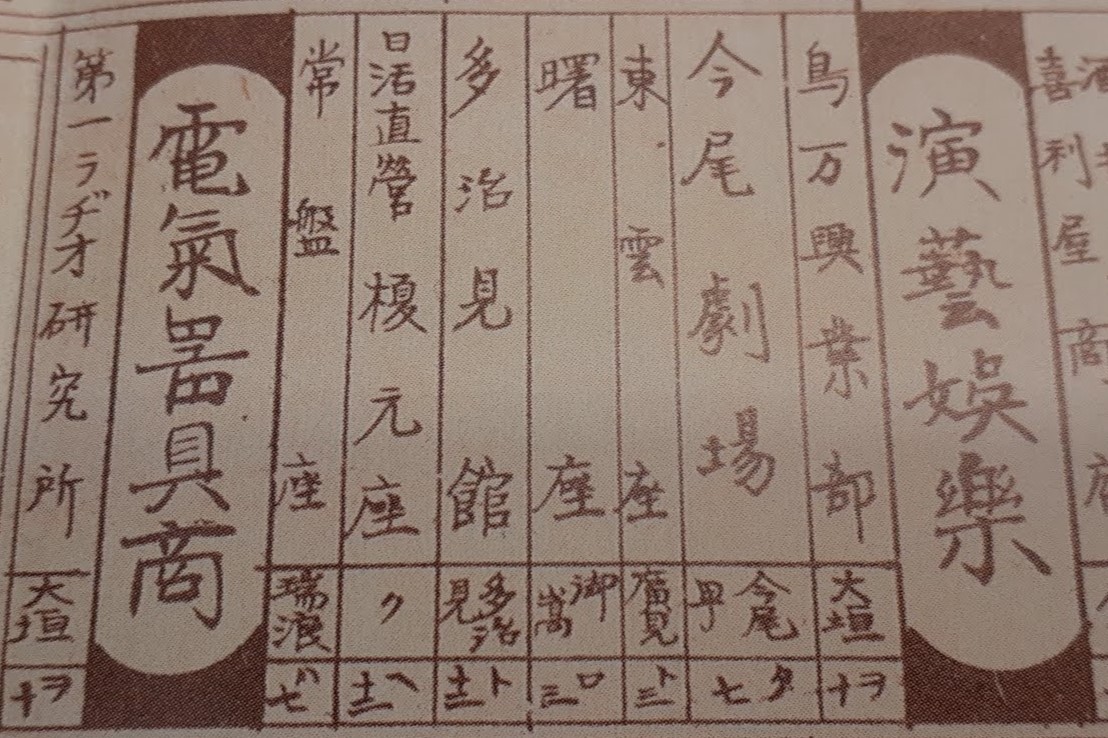 喜利屋商
演藝娯樂
鳥万興業部
大垣
ヲ十
今尾劇場
今尾
タ七
東雲座
廣見
ト三
曙座
御嵩
ロ三
多治見館
多治見
ト十二
日活直營 榎元座
〃
ヘ十二
常盤座
瑞浪
ハ七
電氣噐具商
第一ラヂオ研究所
大垣
ヲ十